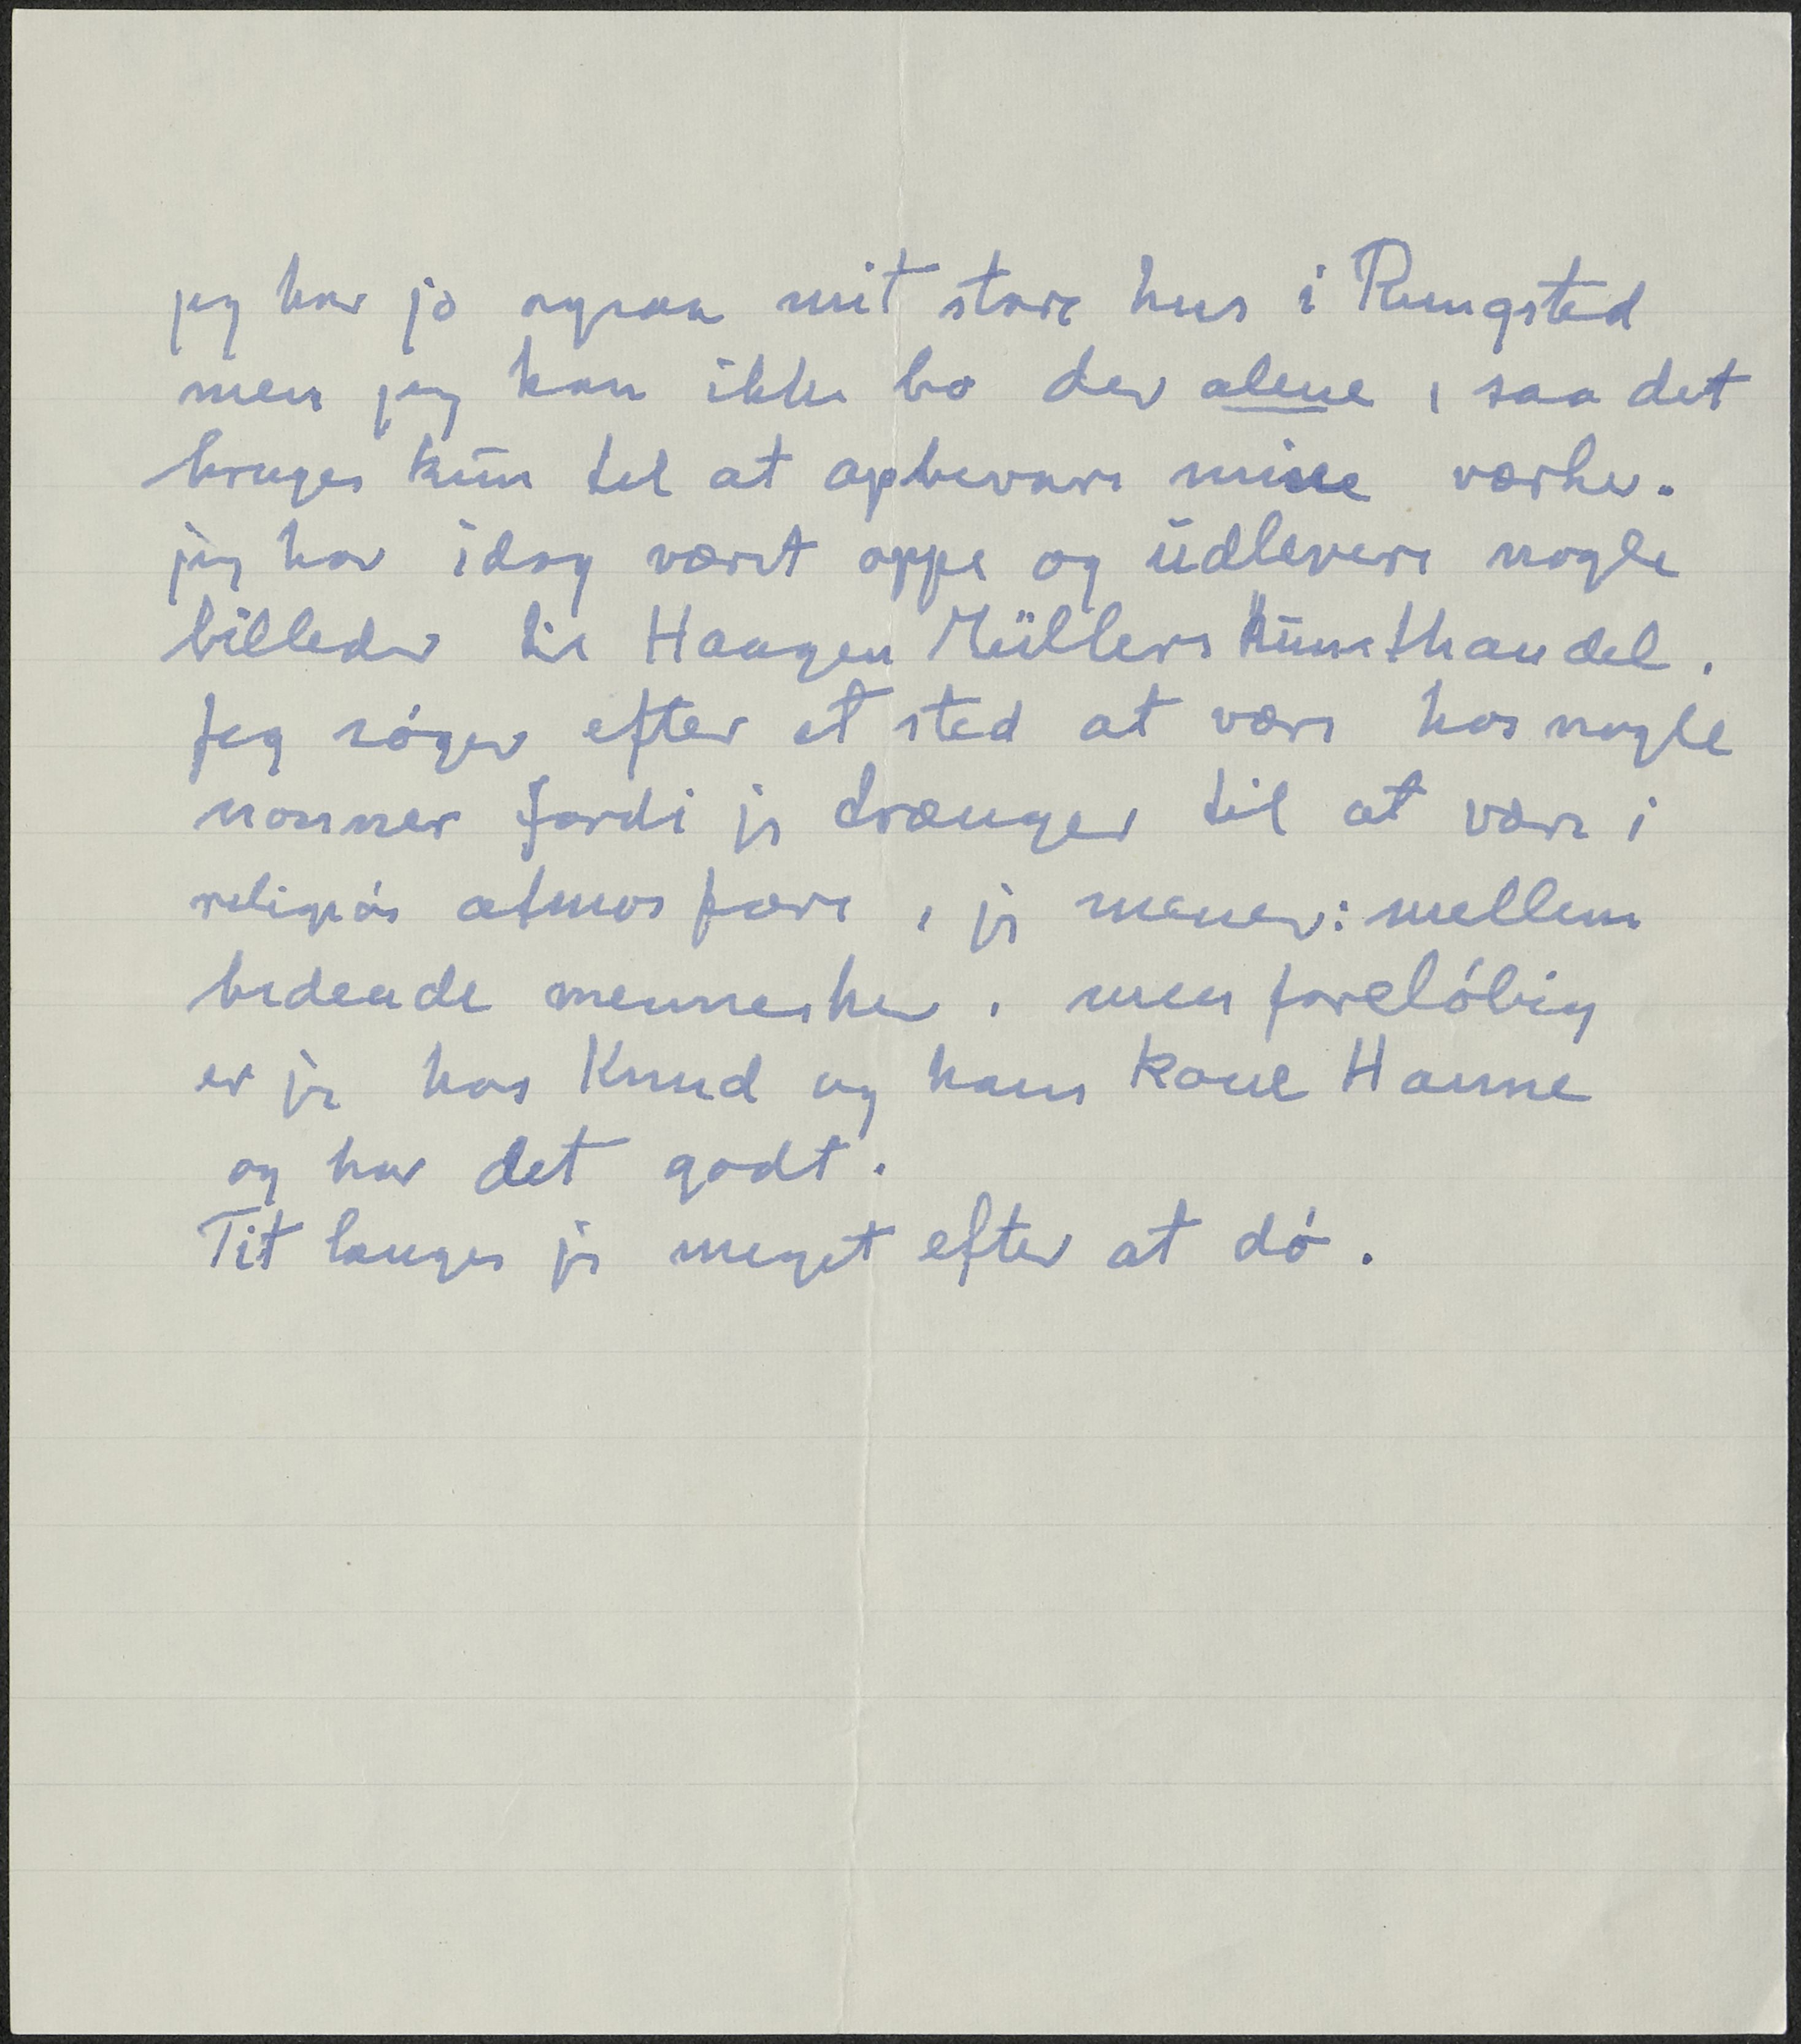 jeg har jo ogsaa mit store hus i Rungsted
men jeg kan ikke bo der alene, saa det
bruges kun til at opbevare mine værker.
jeg har idag været oppe og udlevere nogle
billeder til Haagen Müllers Kunsthandel.
Jeg søger efter et sted at være hos nogle
nonner fordi jeg trænger til at være i
religiøs atmosfære, jeg mener: mellem
bedende mennesker. men foreløbig
er jeg hos Knud og hans kone Hanne
og har det godt.
Tit længes jeg meget efter at dø.